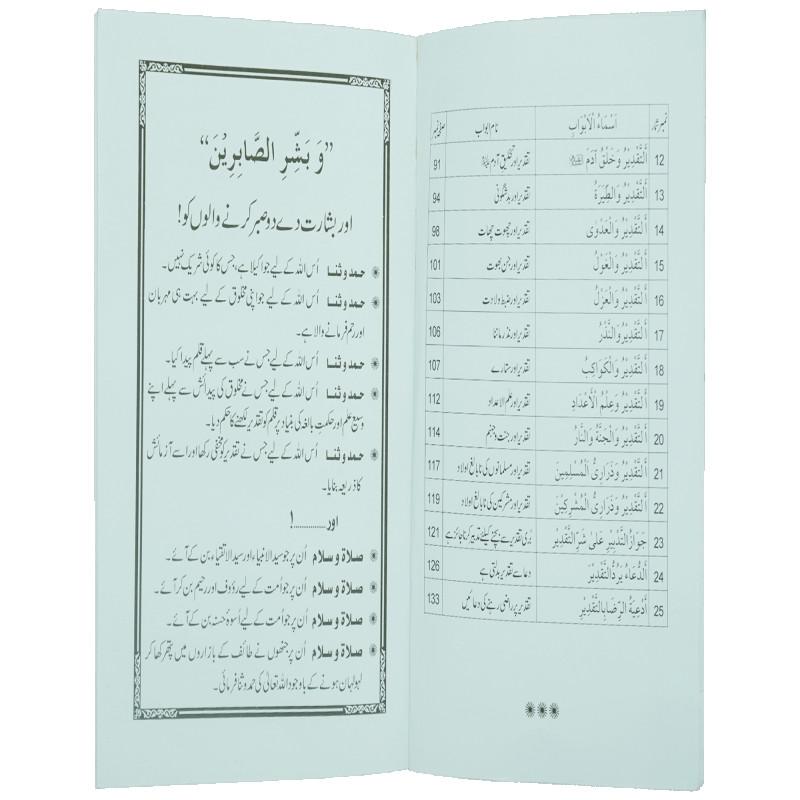 نمبر شمار اَسْمَاءُ الْاَبْوَابِ نام ابواب صفحہ نمبر
12 اَلتَّقْدِيْرُ وَخَلْقُ آدَمَ تقدیر اور تخلیق آدم 91
13 اَلتَّقْدِيْرُ وَالطِّيَرَةُ تقدیر اور بدشگونی 94
14 اَلتَّقْدِيْرُ وَالْعَدْوٰى تقدیر اور چھوت چھات 98
15 اَلتَّقْدِيْرُ وَالْغَوْلُ تقدیر اور جن بھوت 101
16 اَلتَّقْدِيْرُ وَالْعَزْلُ تقدیر اور ضبط ولادت 103
17 اَلتَّقْدِيْرُ وَالنَّذْرُ تقدیر اور نذر ماننا 106
18 اَلتَّقْدِيْرُ وَالْكَوَاكِبُ تقدیر اور ستارے 107
19 اَلتَّقْدِيْرُ وَعِلْمُ الْاَعْدَادِ تقدیر اور علم الاعداد 112
20 اَلتَّقْدِيْرُ وَالْجَنَّةُ وَالنَّارُ تقدیر اور جنت و جہنم 114
21 اَلتَّقْدِيْرُ وَذَرَارِىُّ الْمُسْلِمِيْنَ تقدیر اور مسلمانوں کی نابالغ اولاد 117
22 اَلتَّقْدِيْرُ وَذَرَارِىُّ الْمُشْرِكِيْنَ تقدیر اور مشرکین کی نابالغ اولاد 119
23 جَوَازُ التَّدْبِيْرِ عَلٰى شَرِّ التَّقْدِيْرِ بُری تقدیر سے بچنے کیلئے تدبیر کرنا جائز ہے 121
24 اَلدُّعَاءُ يَرُدُّ التَّقْدِيْرَ دعا سے تقدیر بدلتی ہے 126
25 اَدْعِيَةُ الرِّضَا بِالتَّقْدِيْرِ تقدیر پر راضی رہنے کی دعائیں 133
”وَ بَشِّرِ الصَّابِرِيْنَ“
اور بشارت دے دو صبر کرنے والوں کو!
حمد و ثنا اُس اللہ کے لیے جو اکیلا ہے، جس کا کوئی شریک نہیں۔
حمد و ثنا اُس اللہ کے لیے جو اپنی مخلوق کے لیے بہت ہی مہربان
اور رحم فرمانے والا ہے۔
حمد و ثنا اُس اللہ کے لیے جس نے سب سے پہلے قلم پیدا کیا۔
حمد و ثنا اُس اللہ کے لیے جس نے مخلوق کی پیدائش سے پہلے اپنے
وسیع علم اور حکمتِ بالغہ کی بنیاد پر قلم کو تقدیر لکھنے کا حکم دیا۔
حمد و ثنا اُس اللہ کے لیے جس نے تقدیر کو مخفی رکھا اور اسے آزمائش
کا ذریعہ بنایا۔
اور ............ !
صلاۃ و سلام اُن پر جو سید الانبیاء اور سید الاتقیاء بن کے آئے۔
صلاۃ و سلام اُن پر جو اُمت کے لیے رؤوف اور رحیم بن کر آئے۔
صلاۃ و سلام اُن پر جو اُمت کے لیے اُسوۂ حسنہ بن کے آئے۔
صلاۃ و سلام اُن پر جنھوں نے طائف کے بازاروں میں پتھر کھا کر
لہولہان ہونے کے باوجود اللہ تعالیٰ کی حمد و ثنا فرمائی۔